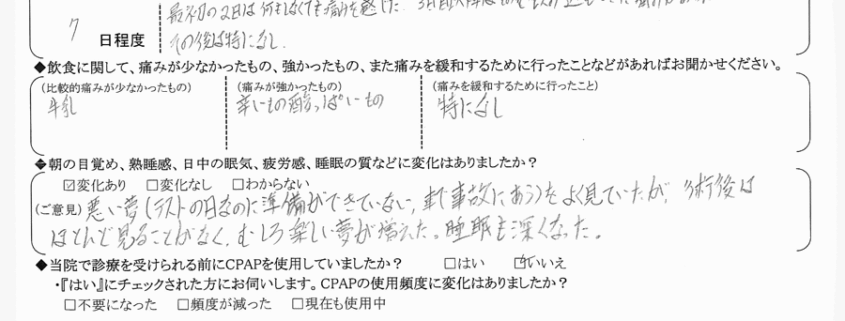 最初の2日は何もしなくても痛みを感じた。3日目以降は
7 日程度 その後は特になし.
◆飲食に関して、痛みが少なかったもの、強かったもの、また痛みを緩和するために行ったことなどがあればお聞かせください。
(比較的痛みが少なかったもの) (痛みが強かったもの) (痛みを緩和するために行ったこと)
牛乳 辛いもの酸っぱいもの 特になし
◆朝の目覚め、熟睡感、日中の眠気、疲労感、睡眠の質などに変化はありましたか？
☑変化あり □変化なし □わからない
(ご意見) 悪い夢(テストの日なのに準備ができていない, 車で事故にあう)をよく見ていたが, 術後は
ほとんど見ることがなく, むしろ楽しい夢が増えた。睡眠も深くなった。
◆当院で診療を受けられる前にCPAPを使用していましたか？ □はい ☑いいえ
・『はい』にチェックされた方にお伺いします。CPAPの使用頻度に変化はありましたか？
□不要になった □頻度が減った □現在も使用中